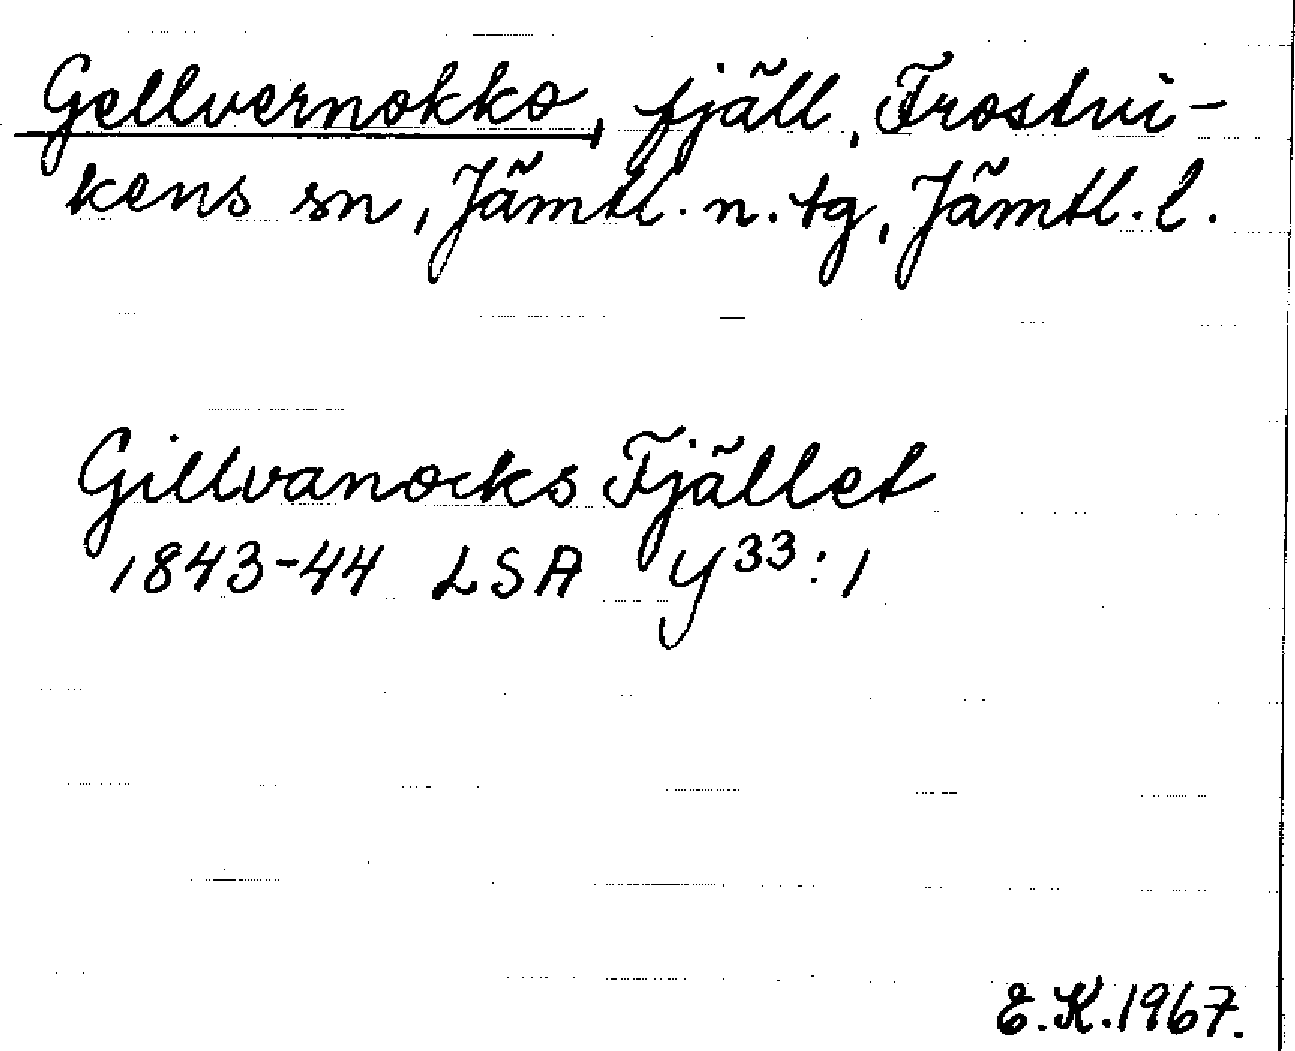 Gellvernokko, fjäll, Frostvi-
kens sn, Jämtl. n. tg, Jämtl. l.
Gillvanocks Fjället
1843-44 LSA Y33:1
E.K.1967.